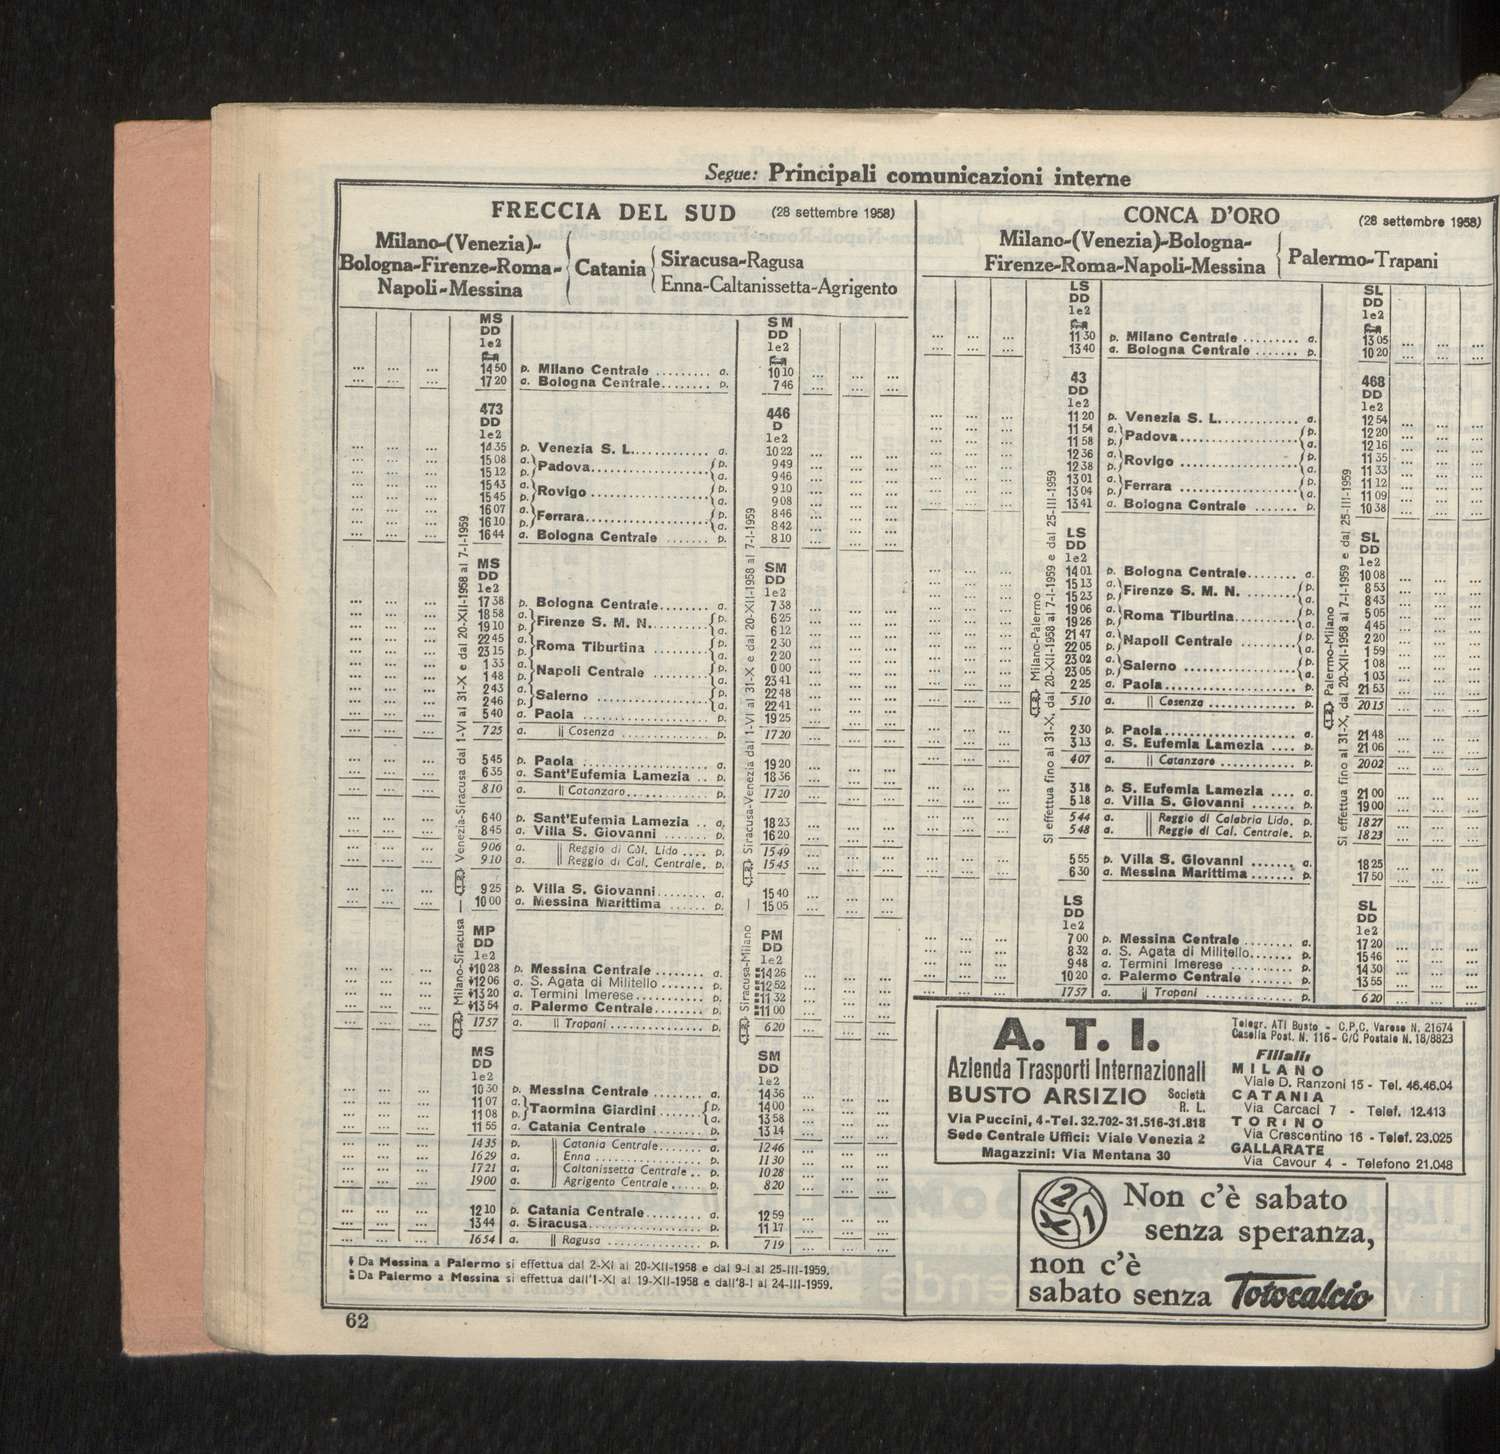 Segue: Principali comunicazioni interne
FRECCIA DEL SUD (28 settembre 1958)
Milano-(Venezia)-
Bologna-Firenze-Roma-
Napoli-Messina
Catania
Siracusa-Ragusa
Enna-Caltanissetta-Agrigento
MS SM
DD DD
1e2 1e2
14 50 p. Milano Centrale ......... a. 10 10
17 20 a. Bologna Centrale....... p. 7 46
473 446
DD D
1e2 1e2
14 35 p. Venezia S. L............ a. 10 22
15 08 a. Padova p. 9 49
15 12 p. a. 9 46
15 43 a. Rovigo p. 9 10
15 45 p. a. 9 08
16 07 a. Ferrara p. 8 46
16 10 p. a. 8 42
16 44 a. Bologna Centrale ...... p. 8 10
MS SM
DD DD
1e2 1e2
17 38 p. Bologna Centrale........ a. 7 38
18 58 a. Firenze S. M. N. p. 6 25
19 10 p. a. 6 12
22 45 a. Roma Tiburtina p. 2 30
23 15 p. a. 2 20
1 33 a. Napoli Centrale p. 0 00
1 48 p. a. 23 41
2 43 a. Salerno p. 22 48
2 46 p. a. 22 41
5 40 a. Paola ................ p. 19 25
7 25 a. || Cosenza ............ p. 17 20
5 45 p. Paola ................ a. 19 20
6 35 a. Sant'Eufemia Lamezia .. p. 18 36
8 10 a. || Catanzaro............ p. 17 20
6 40 p. Sant'Eufemia Lamezia .. a. 18 23
8 45 a. Villa S. Giovanni ....... p. 16 20
9 06 a. || Reggio di Cal. Lido .... p. 15 49
9 10 a. || Reggio di Cal. Centrale. p. 15 45
9 25 p. Villa S. Giovanni........ a. 15 40
10 00 a. Messina Marittima ...... p. 15 05
MP PM
DD DD
1e2 1e2
10 28 p. Messina Centrale ........ a. 14 26
12 06 a. S. Agata di Militello ...... p. 12 52
13 20 a. Termini Imerese........... p. 11 32
13 54 a. Palermo Centrale........ p. 11 00
17 57 a. || Trapani ............. p. 6 20
MS SM
DD DD
1e2 1e2
10 30 p. Messina Centrale ........ a. 14 36
11 07 a. Taormina Giardini p. 14 00
11 08 p. a. 13 58
11 55 a. Catania Centrale ........ p. 13 14
14 35 p. || Catania Centrale....... a. 12 46
16 29 a. || Enna ............... p. 11 30
17 21 a. || Caltanissetta Centrale .. p. 10 28
19 00 a. || Agrigento Centrale ..... p. 8 20
12 10 p. Catania Centrale......... a. 12 59
13 44 a. Siracusa................ p. 11 17
16 54 a. || Ragusa .............. p. 7 19
Milano-Siracusa — Venezia-Siracusa dal 1-VI al 31-X e dal 20-XII-1958 al 7-I-1959
Siracusa-Milano — Siracusa-Venezia dal 1-VI al 31-X e dal 20-XII-1958 al 7-I-1959
Da Messina a Palermo si effettua dal 2-XI al 20-XII-1958 e dal 9-I al 25-III-1959.
Da Palermo a Messina si effettua dall'1-XI al 19-XII-1958 e dall'8-I al 24-III-1959.
62
CONCA D'ORO (28 settembre 1958)
Milano-(Venezia)-Bologna-
Firenze-Roma-Napoli-Messina
Palermo-Trapani
LS SL
DD DD
1e2 1e2
11 30 p. Milano Centrale ......... a. 13 05
13 40 a. Bologna Centrale ....... p. 10 20
43 468
DD DD
1e2 1e2
11 20 p. Venezia S. L............. a. 12 54
11 54 a. Padova p. 12 20
11 58 p. a. 12 16
12 36 a. Rovigo p. 11 35
12 38 p. a. 11 33
13 01 a. Ferrara p. 11 12
13 04 p. a. 11 09
13 41 a. Bologna Centrale ....... p. 10 38
LS SL
DD DD
1e2 1e2
14 01 p. Bologna Centrale........ a. 10 08
15 13 a. Firenze S. M. N. p. 8 53
15 23 p. a. 8 43
19 06 a. Roma Tiburtina p. 5 05
19 26 p. a. 4 45
21 47 a. Napoli Centrale p. 2 20
22 05 p. a. 1 59
23 02 a. Salerno p. 1 08
23 05 p. a. 1 03
2 25 a. Paola................... p. 21 53
5 10 a. || Cosenza ............. p. 20 15
2 30 p. Paola................... a. 21 48
3 13 a. S. Eufemia Lamezia .... p. 21 06
4 07 a. || Catanzaro ............ p. 20 02
3 18 p. S. Eufemia Lamezia .... a. 21 00
5 18 a. Villa S. Giovanni ....... p. 19 00
5 44 a. || Reggio di Calabria Lido. p. 18 27
5 48 a. || Reggio di Cal. Centrale. p. 18 23
5 55 p. Villa S. Giovanni ....... a. 18 25
6 30 a. Messina Marittima....... p. 17 50
LS SL
DD DD
1e2 1e2
7 00 p. Messina Centrale ........ a. 17 20
8 32 a. S. Agata di Militello....... p. 15 46
9 48 a. Termini Imerese .......... p. 14 30
10 20 a. Palermo Centrale ....... p. 13 55
17 57 a. || Trapani ............. p. 6 20
Milano-Palermo
Si effettua fino al 31-X, dal 20-XII-1958 al 7-I-1959 e dal 25-III-1959
Palermo-Milano
Si effettua fino al 31-X, dal 20-XII-1958 al 7-I-1959 e dal 25-III-1959
A. T. I.
Azienda Trasporti Internazionali
BUSTO ARSIZIO Società R. L.
Via Puccini, 4-Tel. 32.702-31.516-31.818
Sede Centrale Uffici: Viale Venezia 2
Magazzini: Via Mentana 30
Telegr. ATI Busto - C.P.C. Varese N. 21674
Casella Post. N. 116 - C/C Postale N. 18/8823
Filiali:
MILANO
Viale D. Ranzoni 15 - Tel. 46.46.04
CATANIA
Via Carcaci 7 - Telef. 12.413
TORINO
Via Crescentino 16 - Telef. 23.025
GALLARATE
Via Cavour 4 - Telefono 21.048
2 X 1
Non c'è sabato
senza speranza,
non c'è
sabato senza Totocalcio